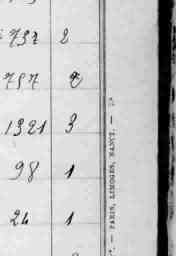 732 2
757 2
1321 3
98 1
24 1
— PARIS, LIMOGES, NANCY. —